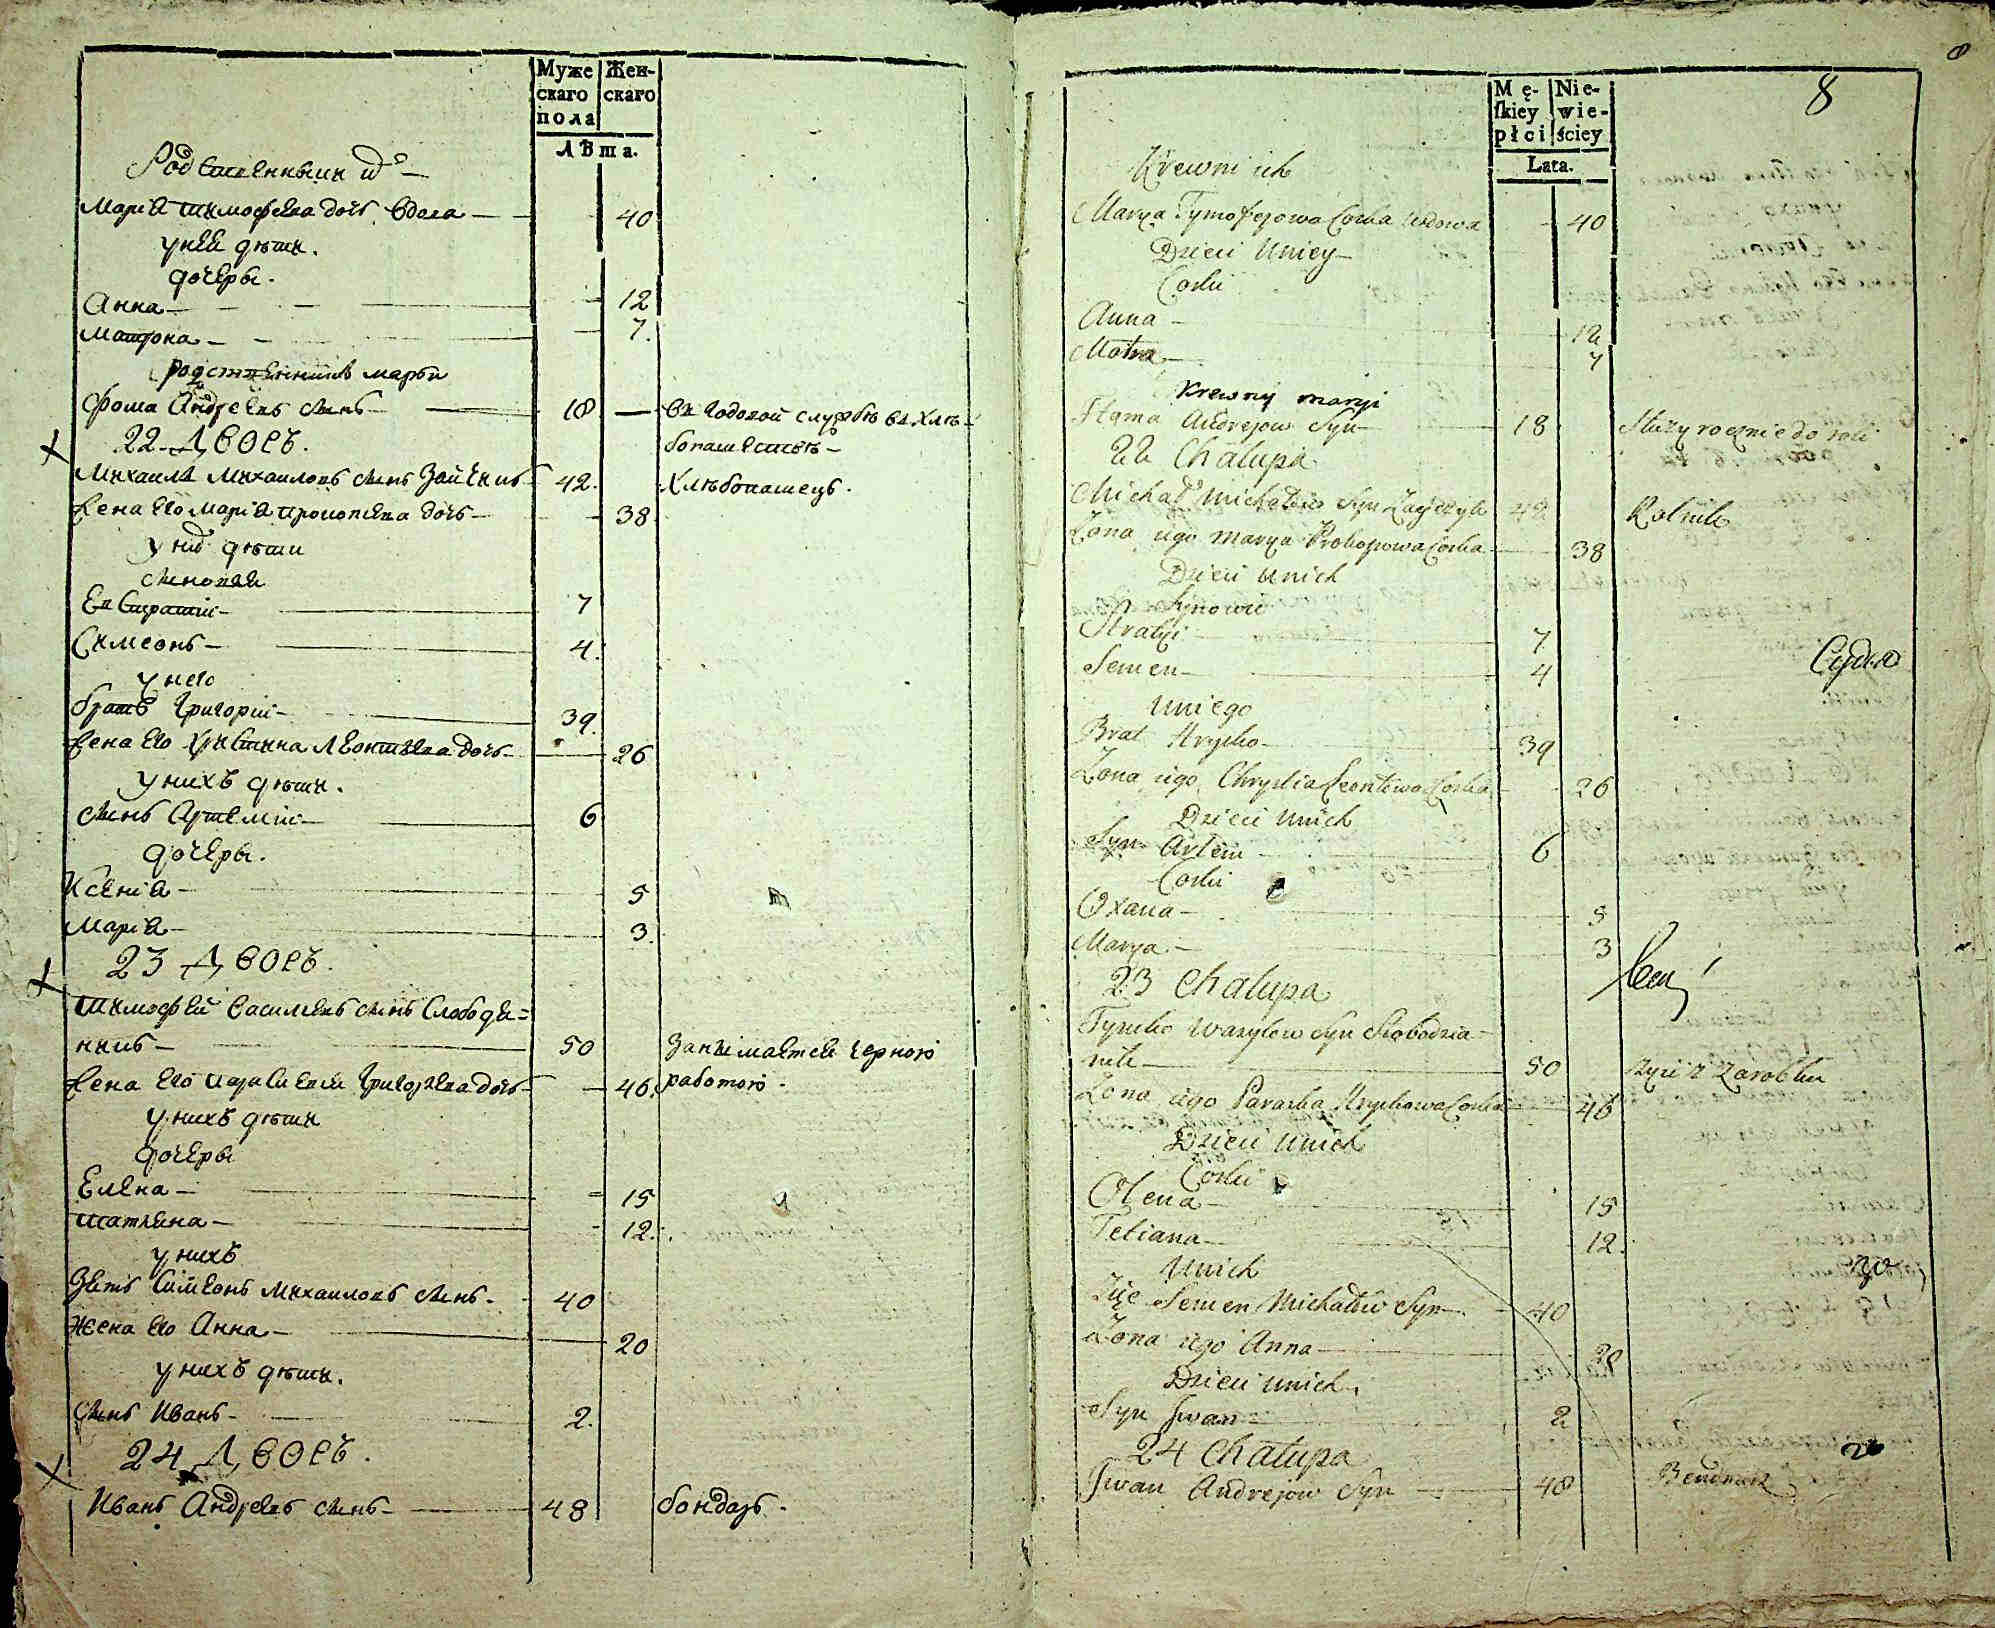 Муже
скаго
пола
Жен-
скаго
Лѣта.
Родственницы их
Марія Тимофеева дочь вдова 40
у нея дѣти.
дочеры.
Анна 12
Матрона 7.
родственникъ марьи
Фома Андреевъ сынъ 18 — въ годовой службѣ въ хлѣ-
бопашествѣ
22 Дворъ.
Михаила Михаиловъ сынъ Зайчикъ 42. Хлѣбопашецъ.
Жена его Марія Прокопиева дочь 38
у них дѣти
сыновья
Евстратій 7
Симеонъ 4.
у него
братъ Григорій 39.
Жена его Христина Леонтиева дочь 26
у нихъ дѣти.
сынъ Артемій 6
дочеры.
Ксенія 5
Марія 3.
23 Дворъ.
Тимофей Василиевъ сынъ Слободя=
никъ 50 Занимается черною
Жена его Параскевія Григориева дочь 46. работою.
у нихъ дѣти
дочеры
Елена 15
Татиана 12.
у нихъ
Зять Симеонъ Михаиловъ сынъ 40
Жена его Анна 20
у нихъ дѣти.
сынъ Иванъ 2.
24 Дворъ.
Иванъ Андреевъ сынъ 48 бондарь.
8
8
Mę-
ſkiey
płci
Nie-
wie-
ściey
Lata.
Krewni ich
Marya Tymofejowa Corka Wdowa 40
Dzieci Uniey
Corki
Anna 12
Motra 7
Krewny maryi
Homa Andrejow Syn 18 Służy rocznie do roli
22 Chałupa
Michał Michałow Syn Zayczyk 42 Rolnik
Zona iego Marya Prokopowa Corka 38
Dzieci Unich
Synowie
Stratyi 7
Semen 4
Uniego
Brat Hryćko 39
Zona iego Chrystia Leontiowa Corka 26
Dzieci Unich
Syn Artem 6
Corki
Oxana 5
Marya 3
23 Chałupa
Tymko Wasylow Syn Słobodzia-
nik 50 zyie z Zarobku
Zona iego Paraska Hryćkowa Corka 46
Dzieci Unich
Corki
Olena 15
Tetiana 12.
Unich
Zięc Semen Michałow Syn 40
Zona iego Anna 20
Dzieci Unich
Syn Iwan 2
24 Chałupa
Iwan Andrejow Syn 48 Bendnarz